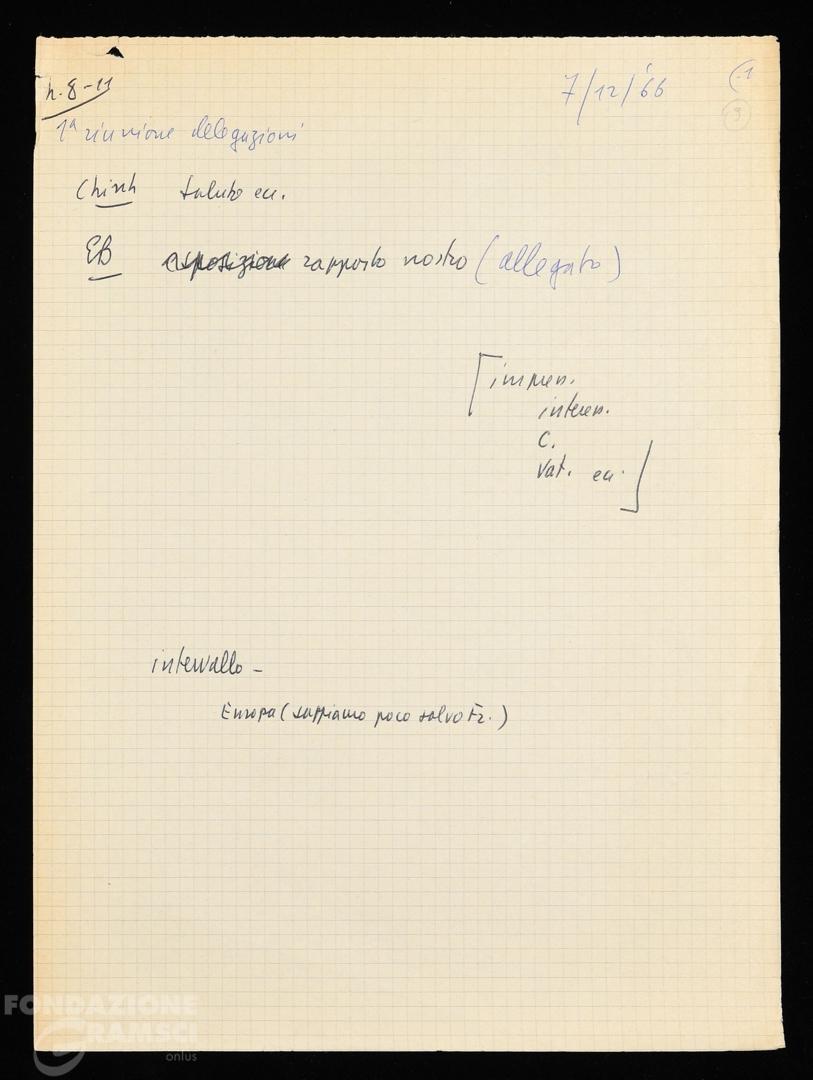 h. 8-11
7/12/'66
(1
3
1ª riunione delegazioni
Chinh saluto ecc.
EB esposizione rapporto nostro (allegato)
[impress.
interess.
C.
Vat. ecc.]
intervallo -
Europa (sappiamo poco salvo Fr.)
FONDAZIONE
GRAMSCI
onlus